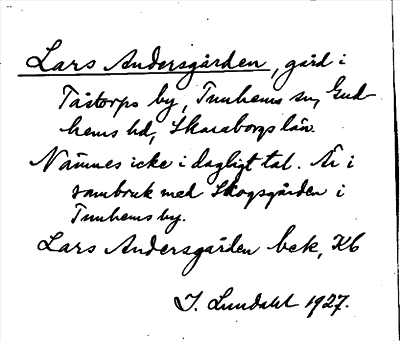 Lars Andersgården, gård i
Tåstorps by, Tunhems sn, Gud-
hems hd, Skaraborgs län.
Nämnes icke i dagligt tal. Är i
sambruk med Skogsgården i
Tunhems by.
Lars Andersgården bek, Kb
I. Lundahl 1927.